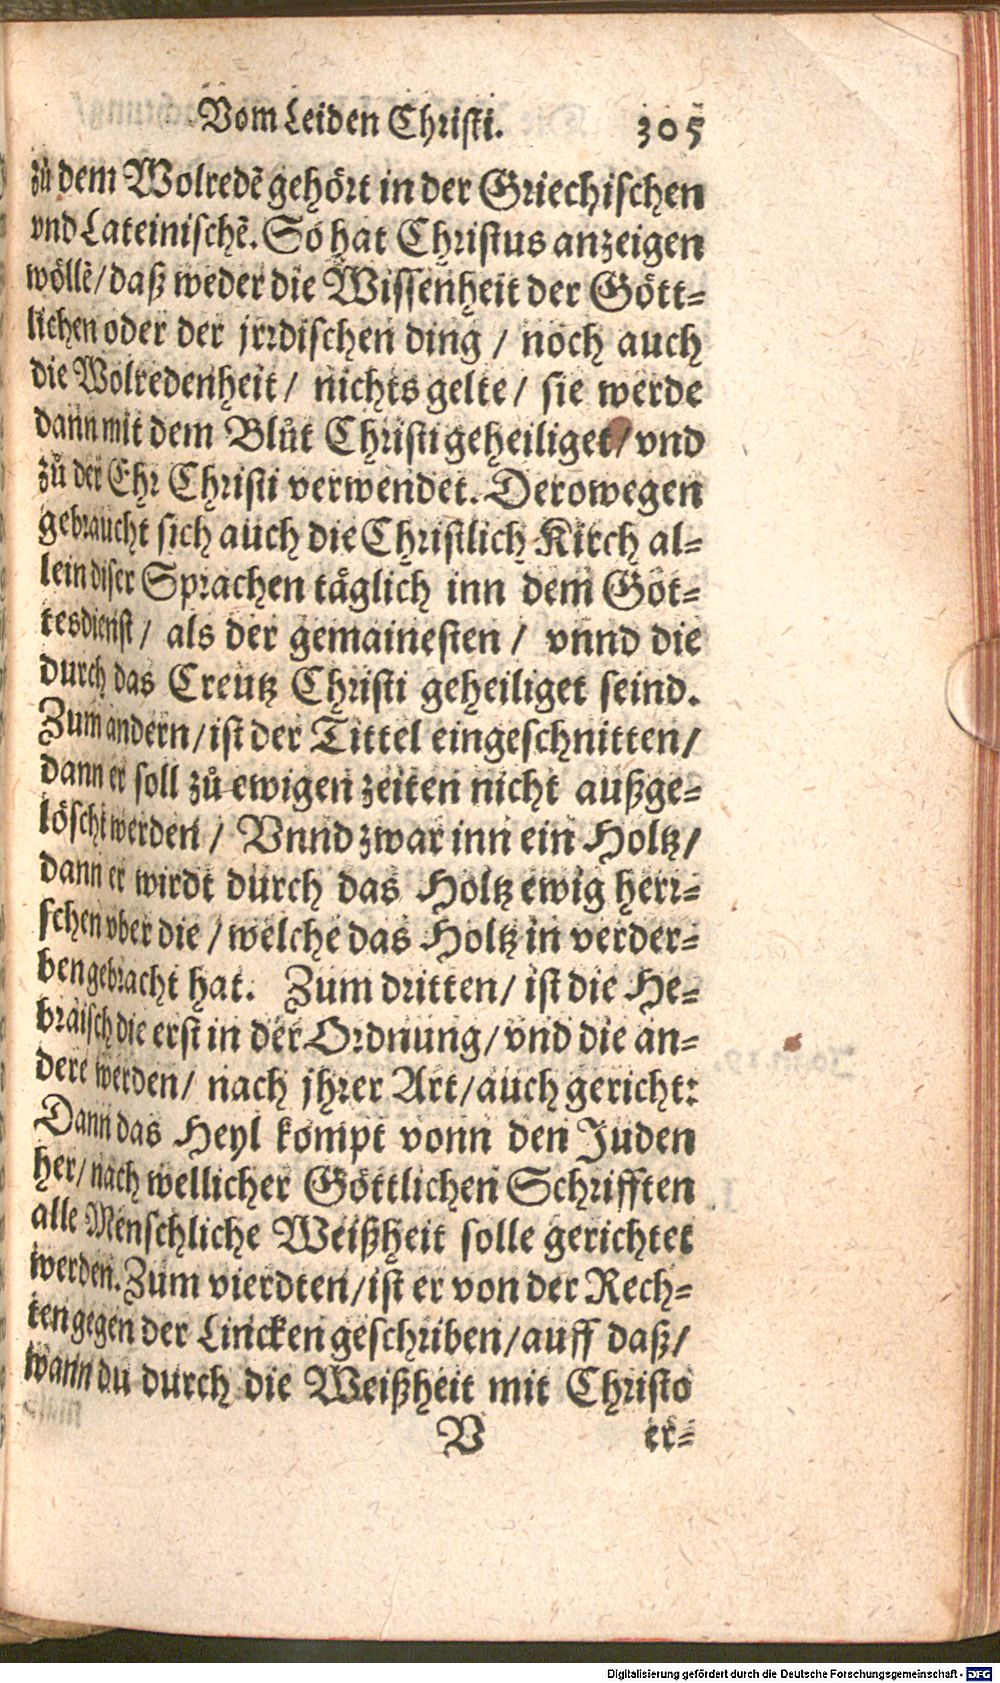 Vom Leiden Christi. 305
zů dem Wolredẽ gehört in der Griechischen
vnd Lateinischẽ. So hat Christus anzeigen
wöllẽ / daß weder die Wissenheit der Gött=
lichen oder der jrrdischen ding / noch auch
die Wolredenheit / nichts gelte / sie werde
dann mit dem Blůt Christi geheiliget / vnd
zů der Ehr Christi verwendet. Derowegen
gebraucht sich auch die Christlich Kirch al=
lein diser Sprachen täglich inn dem Got=
tesdienst / als der gemainesten / vnnd die
durch das Creutz Christi geheiliget seind.
Zum andern / ist der Tittel eingeschnitten /
dann er soll zů ewigen zeiten nicht außge=
löscht werden / Vnnd zwar inn ein Holtz /
dann er wirdt durch das Holtz ewig herr=
schen vber die / welche das Holtz in verder=
ben gebracht hat. Zum dritten / ist die He=
braisch die erst in der Ordnung / vnd die an=
dere werden / nach jhrer Art / auch gericht:
Dann das Heyl kompt vonn den Juden
her / nach wellicher Göttlichen Schrifften
alle Menschliche Weißheit solle gerichtet
werden. Zum vierdten / ist er von der Rech=
ten gegen der Lincken geschriben / auff daß /
wann du durch die Weißheit mit Christo
V er=
Digitalisierung gefördert durch die Deutsche Forschungsgemeinschaft - DFG